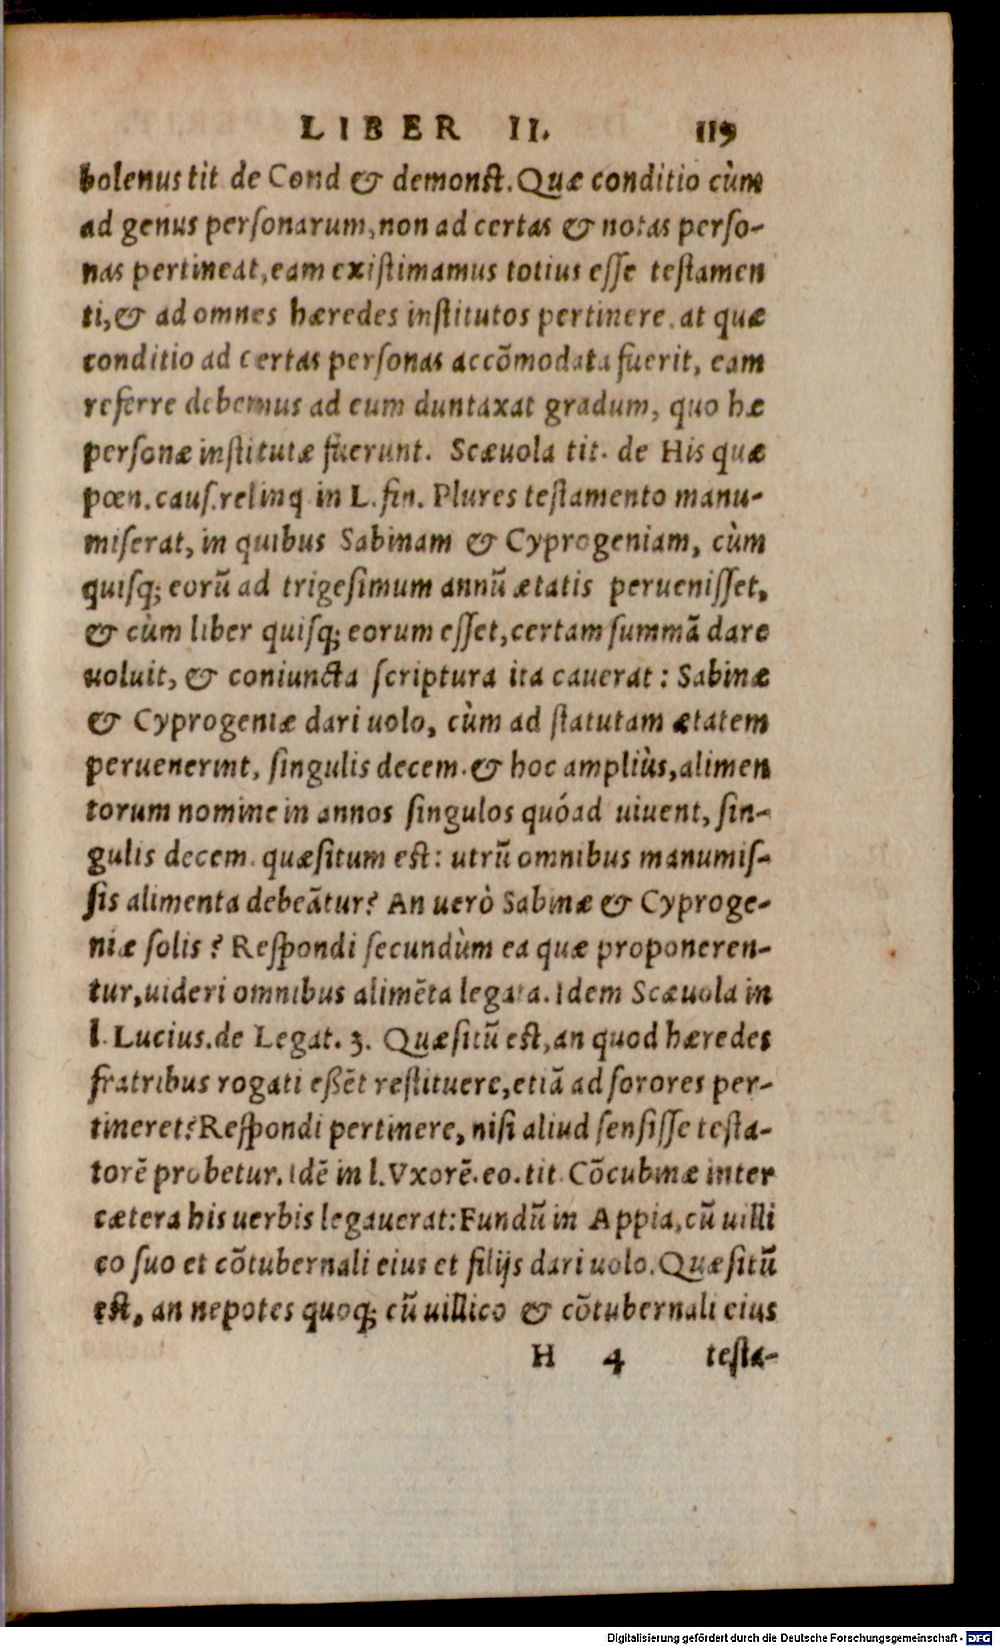 LIBER II. 119
bolenus tit de Cond & demonst. Quæ conditio cùm
ad genus personarum, non ad certas & notas perso-
nas pertineat, eam existimamus totius esse testamen
ti, & ad omnes hæredes institutos pertinere. at quæ
conditio ad certas personas accõmodata fuerit, eam
referre debemus ad eum duntaxat gradum, quo hæ
personæ institutæ fuerunt. Scæuola tit. de His quæ
pœn. caus. relinq in L. fin. Plures testamento manu-
miserat, in quibus Sabinam & Cyprogeniam, cùm
quisq; eorũ ad trigesimum annũ ætatis peruenisset,
& cùm liber quisq; eorum esset, certam summã dare
uoluit, & coniuncta scriptura ita cauerat: Sabinæ
& Cyprogeniæ dari uolo, cùm ad statutam ætatem
peruenerint, singulis decem. & hoc ampliùs, alimen
torum nomine in annos singulos quóad uiuent, sin-
gulis decem. quæsitum est: utrũ omnibus manumis-
sis alimenta debeãtur? An uerò Sabinæ & Cyproge-
niæ solis? Respondi secundùm ea quæ proponeren-
tur, uideri omnibus alimẽta legata. Idem Scæuola in
l. Lucius. de Legat. 3. Quæsitũ est, an quod hæredes
fratribus rogati eßẽt restituere, etiã ad sorores per-
tineret? Respondi pertinere, nisi aliud sensisse testa-
torẽ probetur. Idẽ in l. Vxorẽ. eo. tit. Cõcubinæ inter
cætera his uerbis legauerat: Fundũ in Appia, cũ uilli
co suo et cõtubernali eius et filijs dari uolo. Quæsitũ
est, an nepotes quoq; cũ uillico & cõtubernali eius
H 4 testa-
Digitalisierung gefördert durch die Deutsche Forschungsgemeinschaft - DFG